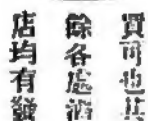 買可也其
餘各處酒
店均有發